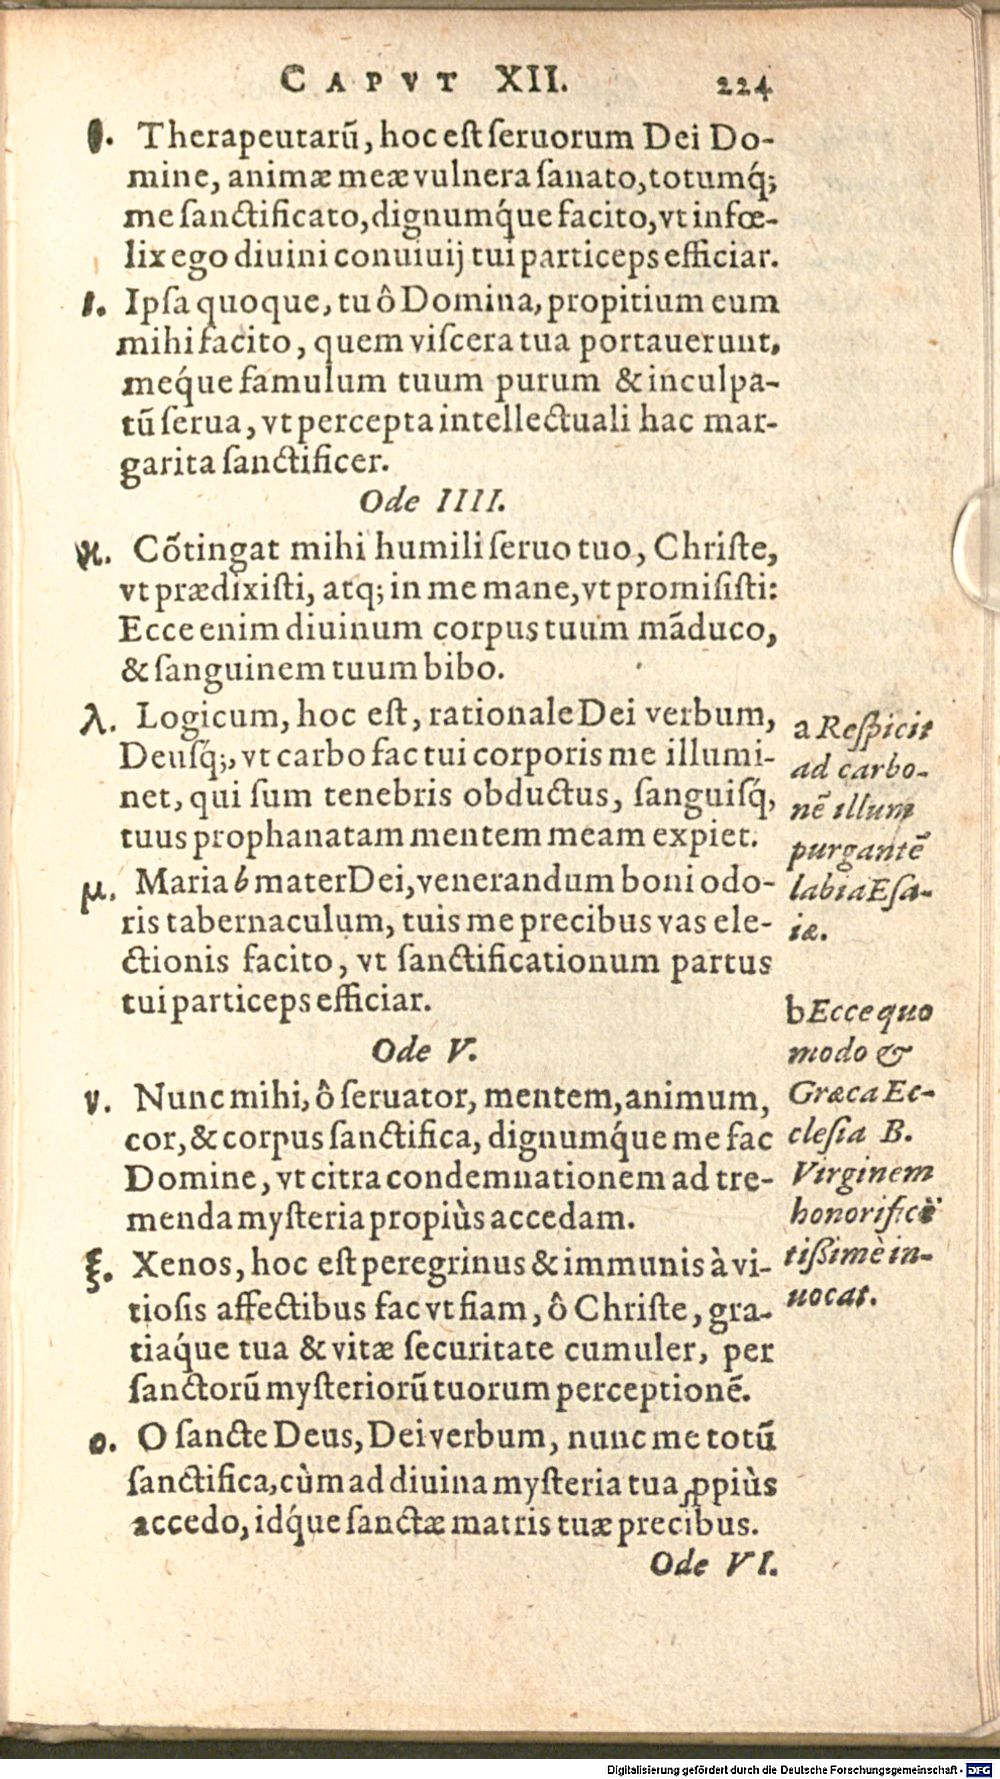 CAPVT XII. 224
θ. Therapeutarũ, hoc est ſeruorum Dei Do-
mine, animæ meæ vulnera ſanato, totumq́;
me ſanctificato, dignumq́ue facito, vt infœ-
lix ego diuini conuiuij tui particeps efficiar.
ι. Ipſa quoque, tu ô Domina, propitium eum
mihi facito, quem viſcera tua portauerunt,
meq́ue famulum tuum purum & inculpa-
tũ ſerua, vt percepta intellectuali hac mar-
garita ſanctificer.
Ode IIII.
ϰ. Cõtingat mihi humili ſeruo tuo, Chriſte,
vt prædixiſti, atq; in me mane, vt promiſiſti:
Ecce enim diuinum corpus tuum mãduco,
& ſanguinem tuum bibo.
λ. Logicum, hoc eſt, rationale Dei verbum,
Deuſq́;, vt carbo fac tui corporis me illumi-
net, qui ſum tenebris obductus, ſanguiſq́,
tuus prophanatam mentem meam expiet.
μ. Maria b mater Dei, venerandum boni odo-
ris tabernaculum, tuis me precibus vas ele-
ctionis facito, vt ſanctificationum partus
tui particeps efficiar.
Ode V.
ν. Nunc mihi, ô ſeruator, mentem, animum,
cor, & corpus ſanctifica, dignumq́ue me fac
Domine, vt citra condemnationem ad tre-
menda myſteria propiùs accedam.
ξ. Xenos, hoc eſt peregrinus & immunis à vi-
tioſis affectibus fac vt fiam, ô Chriſte, gra-
tiaq́ue tua & vitæ ſecuritate cumuler, per
ſanctorũ myſteriorũ tuorum perceptionẽ.
ο. O ſancte Deus, Dei verbum, nunc me totũ
ſanctifica, cùm ad diuina myſteria tua ꝓpiùs
accedo, idq́ue ſanctæ matris tuæ precibus.
Ode VI.
a Reſpicit
ad carbo-
nẽ illum
purgantẽ
labia Eſa-
iæ.
b Ecce quo
modo &
Græca Ec-
cleſia B.
Virginem
honorificẽ
tißimè in-
uocat.
Digitalisierung gefördert durch die Deutsche Forschungsgemeinschaft - DFG